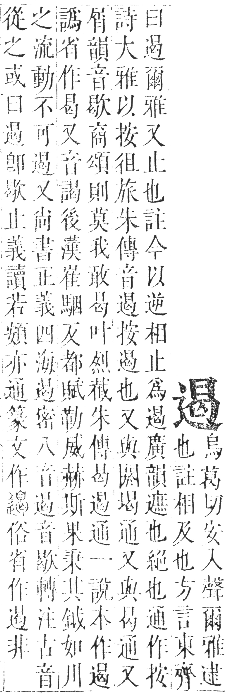 遏
烏葛切安入聲爾雅逮
也註相及也方言東齊
曰遏爾雅又止也註今以逆相止爲遏廣韻遮也絕也通作按
詩大雅以按徂旅朱傳音遏按遏也又與閼堨通又與曷通又
屑韻音歇商頌則莫我敢曷叶烈截朱傳曷遏通一說本作遏
譌省作曷又音謁後漢崔駰反都賦勒威赫斯果秉其鉞如川
之流動不可遏又尚書正義四海遏密八音遏音歇轉注古音
從之或曰遏卽歇止義讀若頞亦通篆文作俗省作遏非